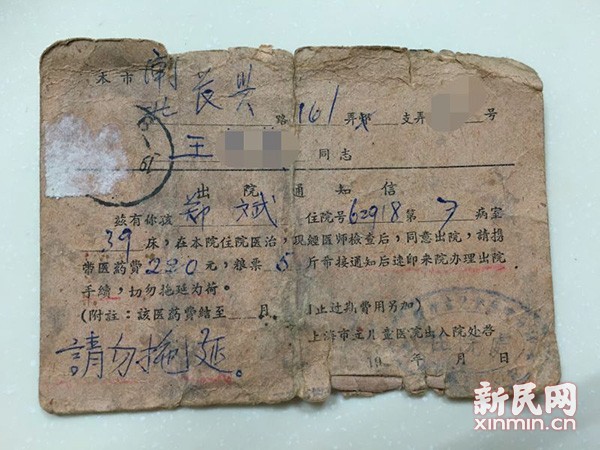 本市
长兴
路161弄 支弄 号
王 同志
出院通知信
兹有你孩郑斌住院号62918第7病室
39床，在本院住院医治，现经医师检查后，同意出院，請携
带医药費220元，粮票5斤希接通知后速即来院办理出院
手續，切勿拖延为荷。
(附註：該医药費結至 月 日止过期費用另加)
上海市 医院出入院处告
19 年 月 日
請勿拖延。
新民网
xinmin.cn